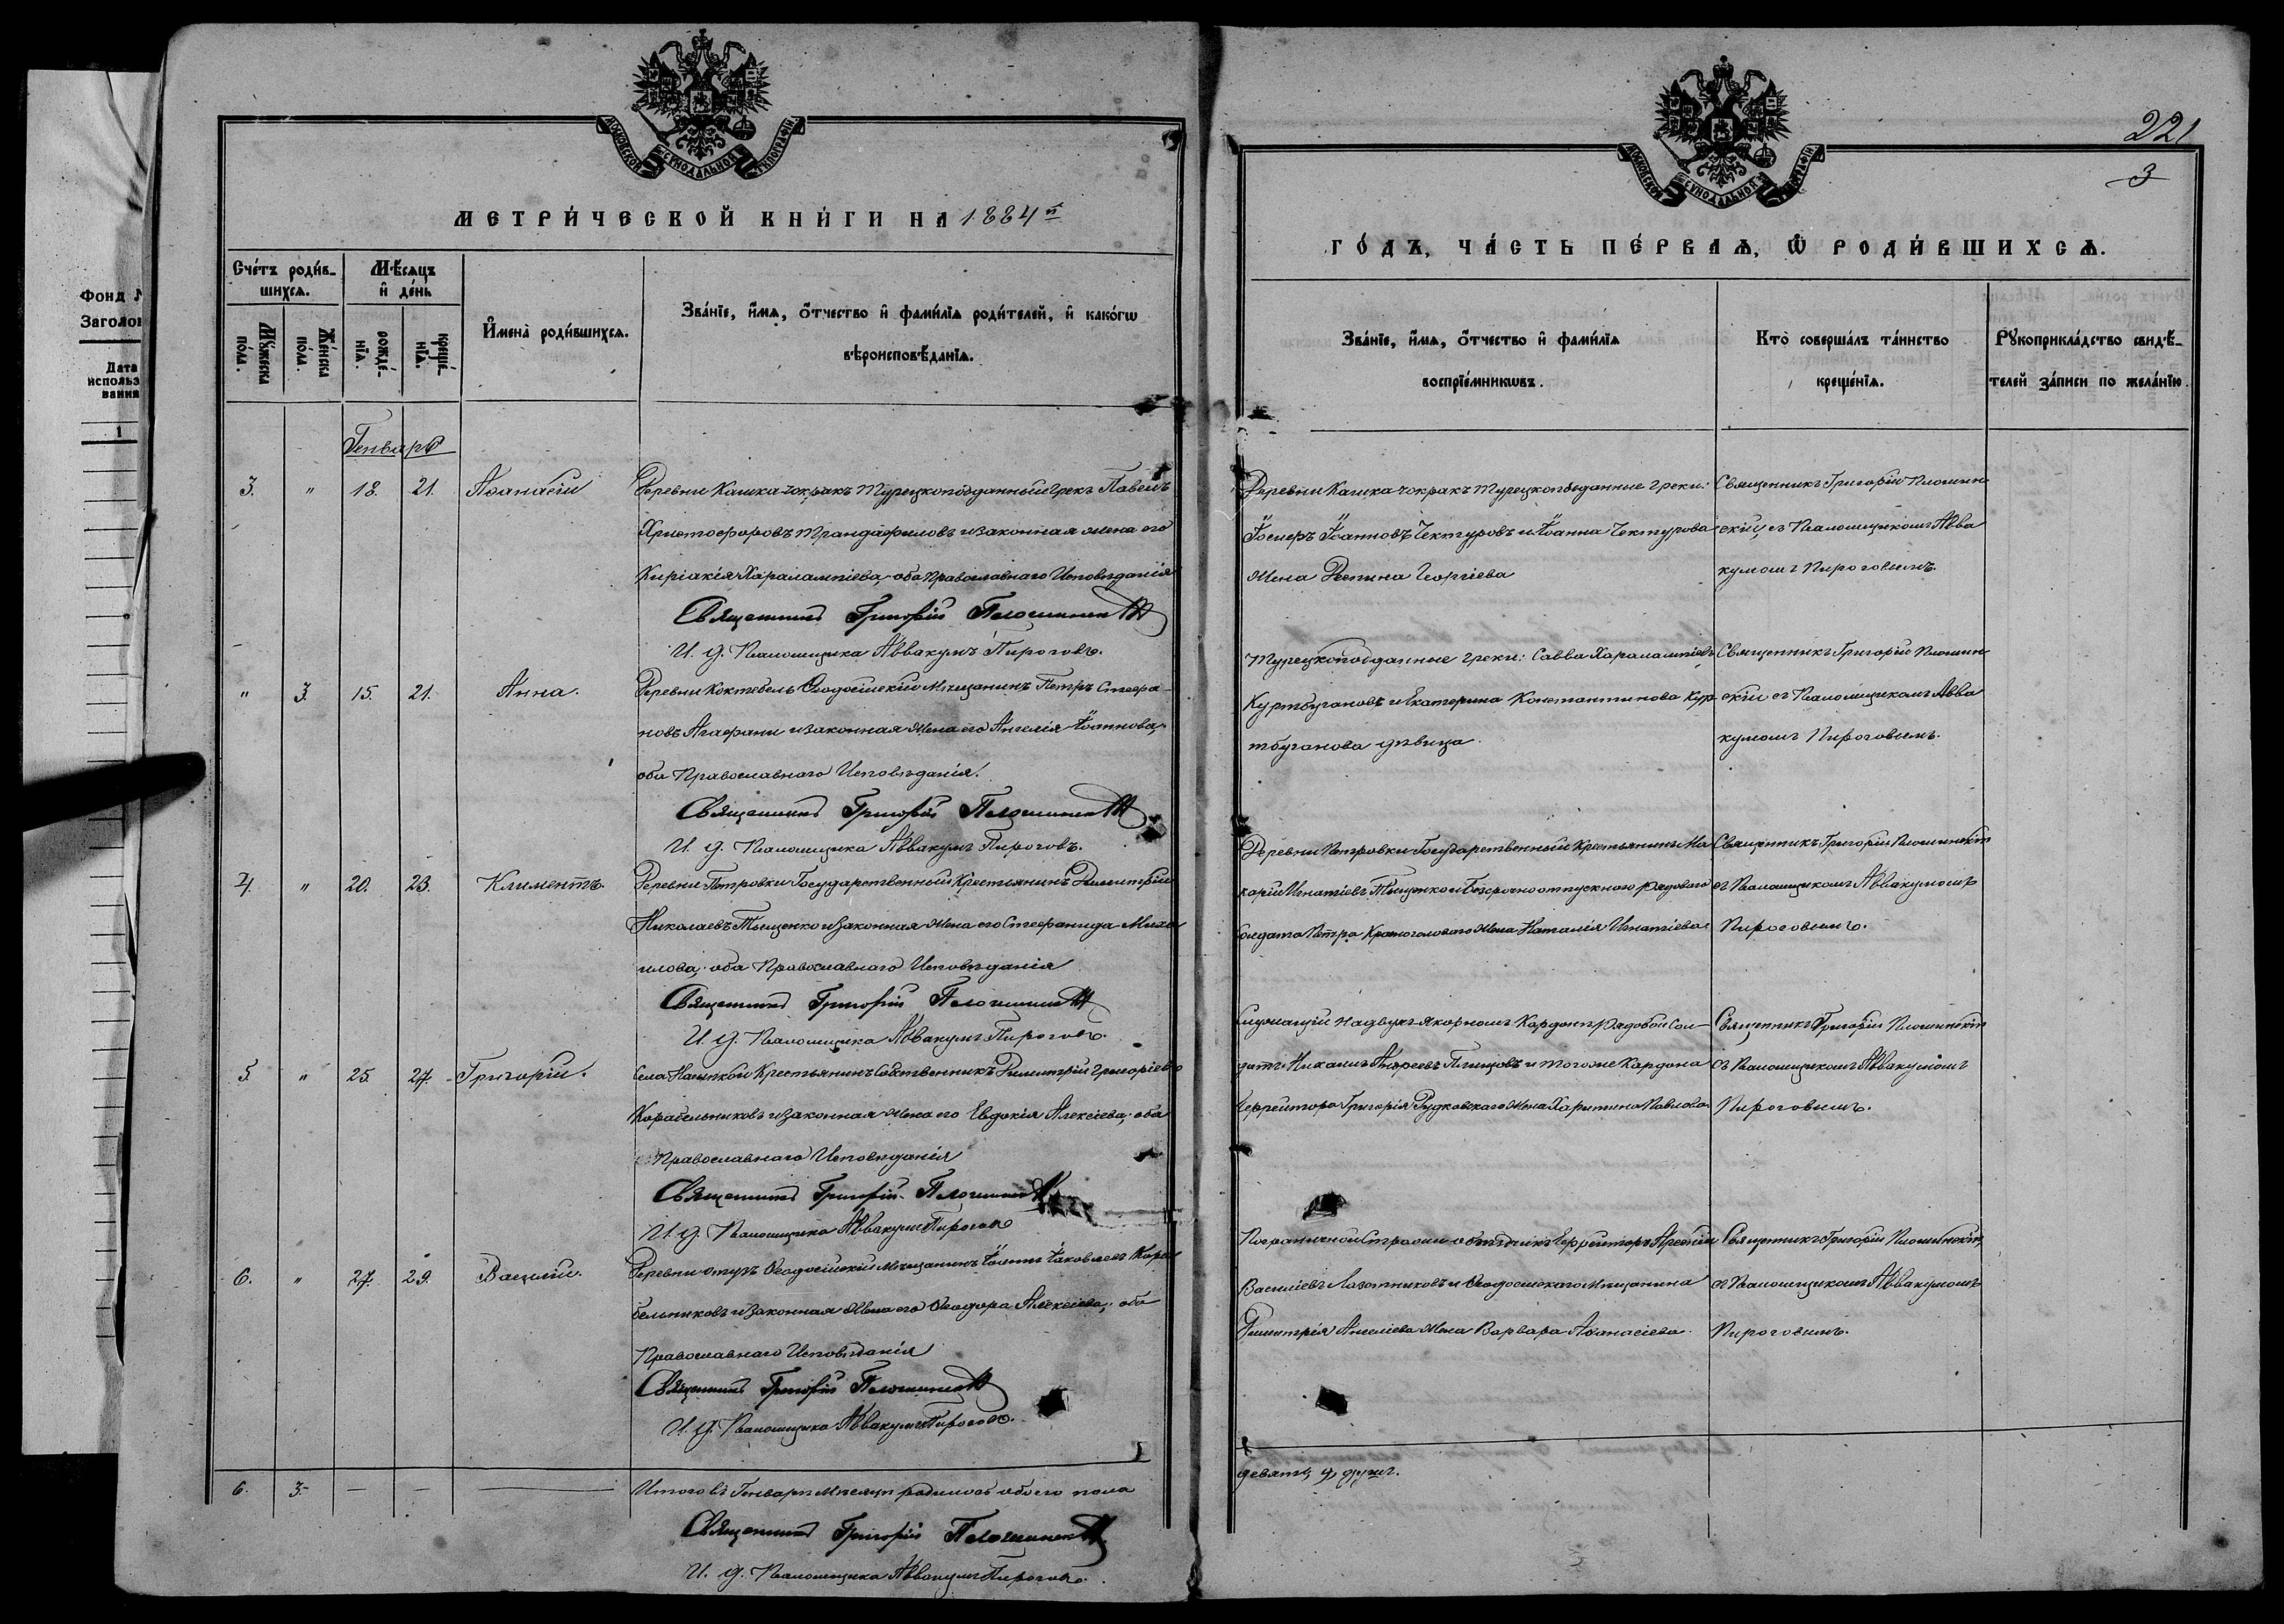 Фонд
Заголо
Дата
использ
вания
1
МОСКОВСКОЙ СѴНОДАЛЬНОЙ ТИПОГРАФІИ
МЕТРИ́ЧЕСКОЙ КНИ́ГИ НА 1884й
Сче́тъ роди́в-
шихсѧ.
Мѣ́сѧцъ
и҆ де́нь
И҆мена̀ роди́вшихсѧ.
Зва́нїе, и҆́мѧ, ѻ҆́тчество и҆ фами́лїѧ роди́телей, и҆ како́гѡ
вѣроисповѣ́данїѧ.
Мꙋ́жеска
по́ла.
Же́нска
по́ла.
рожде́-
нїѧ.
креще́-
нїѧ.
Генварь
3. " 18. 21. Аѳанасій
Деревни Кашка-чокракъ Турецкоподданный Грекъ Павелъ
Христофоровъ Трандафиловъ и законная жена его
Киріакія Харалампіева, оба Православнаго Исповѣданія
Священникъ Григорій Плошинскій
И. д. Псаломщика Аввакумъ Пироговъ.
" 3. 15. 21. Анна.
Деревни Коктебель Ѳеодосійскій Мѣщанинъ Петръ Стефа-
новъ Агафани и законная жена его Ангелія Іоаннова,
оба Православнаго Исповѣданія.
Священникъ Григорій Плошинскій
И. д. Псаломщика Аввакумъ Пироговъ.
4. " 20. 23. Климентъ.
Деревни Петровки Государственный Крестьянинъ Димитрій
Николаевъ Тищенко и законная жена его Стефанида Миха
илова, оба Православнаго Исповѣданія
Священникъ Григорій Плошинскій
И. д. Псаломщика Аввакумъ Пироговъ.
5. " 25. 27. Григорій.
Села Насыпкой Крестьянинъ Собственникъ Димитрій Григоріевъ
Корабельниковъ и законная жена его Евдокія Алексіева, оба
Православнаго Исповѣданія
Священникъ Григорій Плошинскій
И. д. Псаломщика Аввакумъ Пироговъ
6. " 27. 29. Василій.
Деревни Отузъ Ѳеодосійскій Мѣщанинъ Іоаннъ Іаковлевъ Кора
бельниковъ и законная жена его Ѳеодора Алексіева, оба
Православнаго Исповѣданія
Священникъ Григорій Плошинскій
И. д. Псаломщика Аввакумъ Пироговъ.
6. 3. — — —
Итого въ Генварѣ Мѣсяцѣ родилось обоего пола
Священникъ Григорій Плошинскій
И. д. Псаломщика Аввакумъ Пироговъ.
221
3
МОСКОВСКОЙ СѴНОДАЛЬНОЙ ТИПОГРАФІИ
ГО́ДЪ, ЧА́СТЬ ПЕ́РВАѦ, Ѡ҆ РОДИ́ВШИХСѦ.
Зва́нїе, и҆́мѧ, ѻ҆́тчество и҆ фами́лїѧ
воспрїе́мникѡвъ.
Кто̀ соверша́лъ та́инство
креще́нїѧ.
Рꙋкоприкла́дство свидѣ́-
телей за́писи по жела́нїю.
Деревни Кашка-чокракъ Турецкоподданные Греки:
Іосифъ Іоанновъ Чектуровъ и Іоанна Чектурова
жена Деспина Георгіева
Священникъ Григорій Плошин
скій, съ Псаломщикомъ Авва
кумомъ Пироговымъ.
Турецкоподданные Греки: Савва Харалампіевъ
Куртбугановъ и Екатерина Константинова Кур
тбуганова дѣвица.
Священникъ Григорій Плошин
скій съ Псаломщикомъ Авва
кумомъ Пироговымъ.
Деревни Петровки Государственный Крестьянинъ Ма
карій Игнатіевъ Тищенко и Безсрочноотпускного рядоваго
солдата Петра Красноголоваго жена Наталія Игнатіева
Священникъ Григорій Плошинскій
съ Псаломщикомъ Аввакумомъ
Пироговымъ.
Служащій на Двухъ-Якорномъ Кордонѣ Рядовой Сол-
датъ Андреевъ и того же Кордона
Ефрейтора Григорія Рудковскаго жена Харитина Павлова
Священникъ Григорій Плошинскій
съ Псаломщикомъ Аввакумомъ
Пироговымъ.
Пограничной Стражи объѣздчикъ Ефрейторъ Арсеній
Василіевъ и Ѳеодосійскаго Мѣщанина
Димитрія Ангеліева жена Варвара Аѳанасіева.
Священникъ Григорій Плошинскій,
съ Псаломщикомъ Аввакумомъ
Пироговымъ.
девять, 9, душъ.